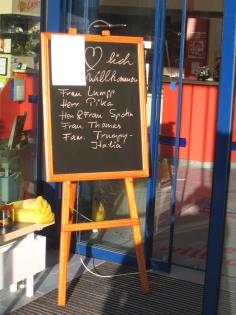 ❤lich
Willkommen
Frau Lumpp
Herr Pika
Herr & Frau Spohn
Frau Thomas
Fam. Trumpp-
Italia